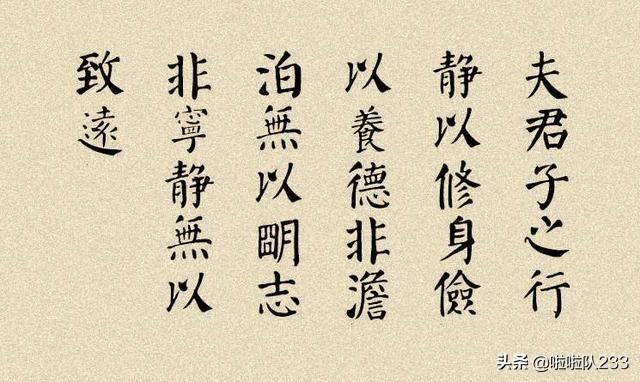 夫君子之行
静以修身儉
以養德非澹
泊無以明志
非寧静無以
致遠
头条 @啦啦队233